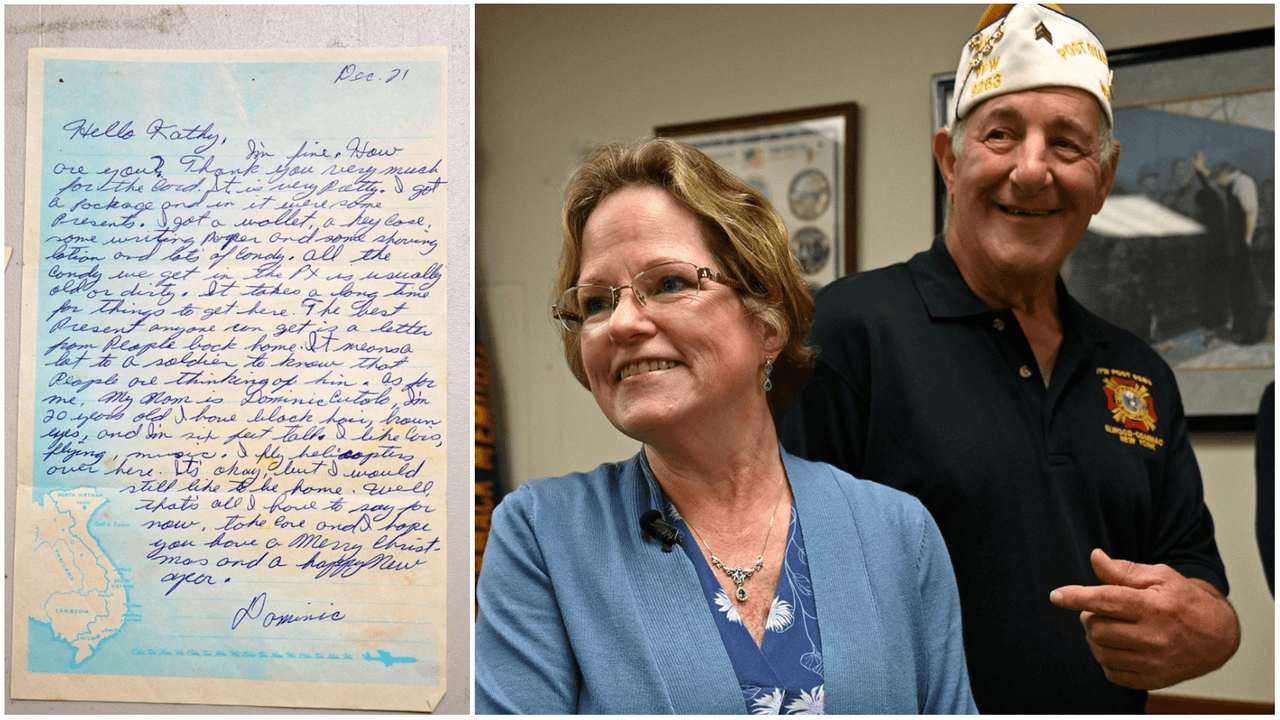 Dec. 21
Hello Kathy,
I'm fine. How
are you? Thank you very much
for the card. It is very Patty. I got
a package and in it were some
Presents. I got a wallet, a key case,
some writing paper and some shaving
lotion and lots of candy. All the
candy we get in the PX is usually
old or dirty. It takes a long time
for things to get here. The best
Present anyone can get is a letter
from People back home. It means a
lot to a soldier to know that
People are thinking of him. As for
me, My Nom is Dominic Cutolo, I'm
20 years old I have black hair, brown
eyes, and I'm six feet tall. I like cars,
flying, music. I fly helicopters
over here. It's okay, but I would
still like to be home. Well,
that's all I have to say for
now, take care and I hope
you have a Merry Christ-
mas and a happy New
year.
Dominic
NORTH VIETNAM
THAILAND
SOUTH VIETNAM
CAMBODIA
VFW
9263
POST
VFW POST 9263
ELWOOD-COMMACK
NEW YORK